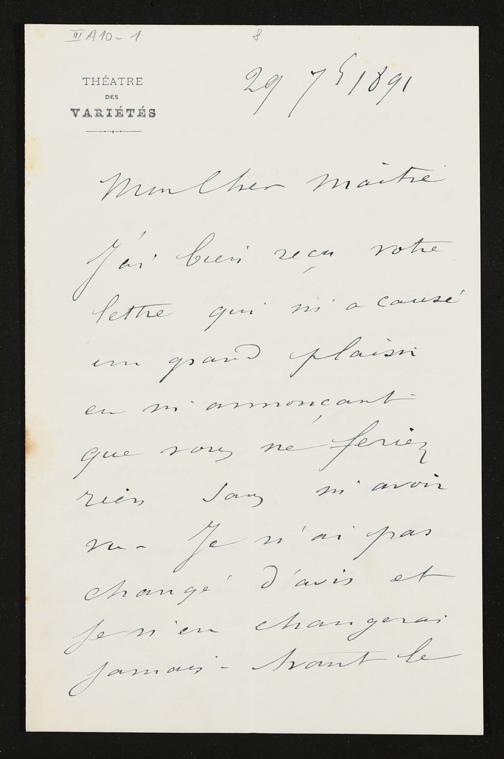 III A10-1
8
THÉATRE
DES
VARIÉTÉS
29 7b 1891
Mon Cher Maître
J'ai bien reçu votre
lettre qui m'a causé
un grand plaisir
en m'annonçant
que vous ne feriez
rien sans m'avoir
vu - Je n'ai pas
changé d'avis et
je n'en changerai
jamais - Avant le